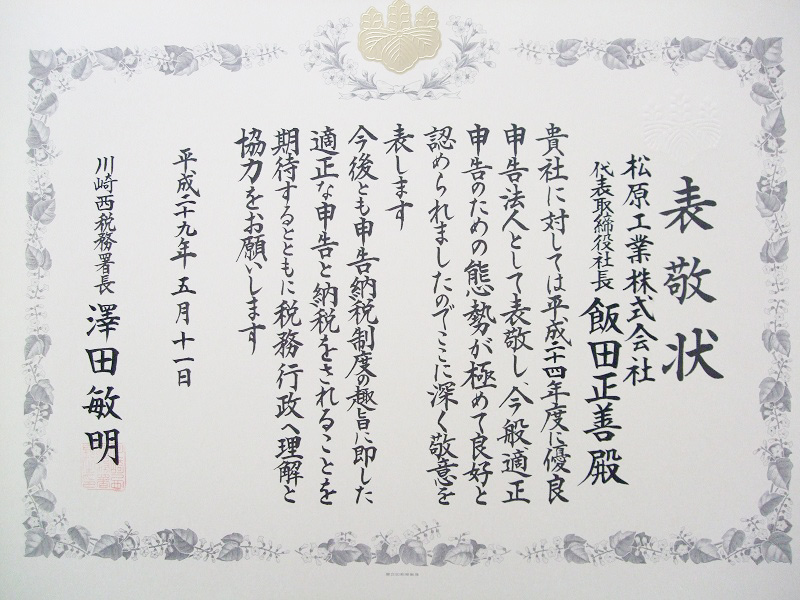 表敬状
松原工業株式会社
代表取締役社長 飯田正善殿
貴社に対しては平成二十四年度に優良
申告法人として表敬し、今般適正
申告のための態勢が極めて良好と
認められましたのでここに深く敬意を
表します
今後とも申告納税制度の趣旨に即した
適正な申告と納税をされることを
期待するとともに税務行政へ理解と
協力をお願いします
平成二十九年五月十一日
川崎西税務署長 澤田敏明